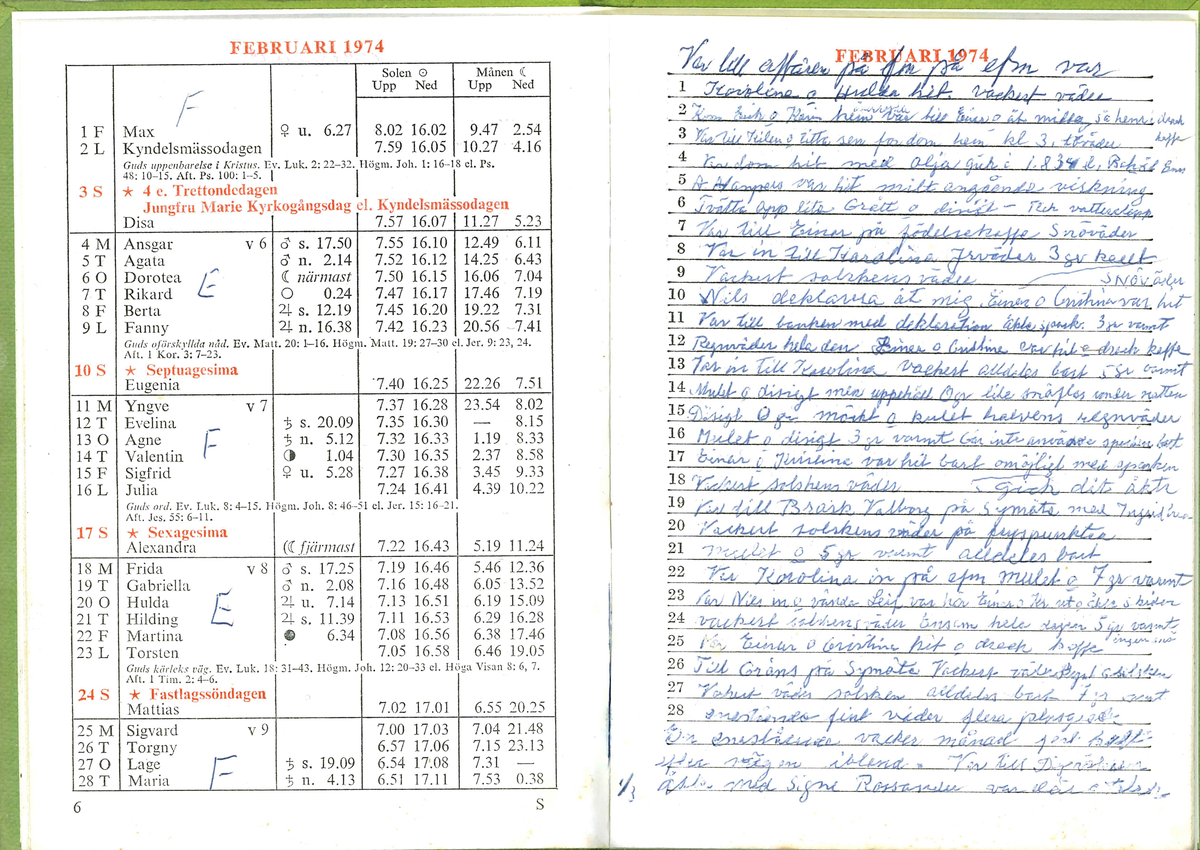 FEBRUARI 1974
Solen ☉ Månen ☾
Upp Ned Upp Ned
F
1 F Max ♀ u. 6.27 8.02 16.02 9.47 2.54
2 L Kyndelsmässodagen 7.59 16.05 10.27 4.16
Guds uppenbarelse i Kristus. Ev. Luk. 2: 22–32. Högm. Joh. 1: 16–18 el. Ps.
48: 10–15. Aft. Ps. 100: 1–5.
3 S ★ 4 e. Trettondedagen
Jungfru Marie Kyrkogångsdag el. Kyndelsmässodagen
Disa 7.57 16.07 11.27 5.23
4 M Ansgar v 6 ♂ s. 17.50 7.55 16.10 12.49 6.11
5 T Agata ♂ n. 2.14 7.52 16.12 14.25 6.43
6 O Dorotea ☾ närmast 7.50 16.15 16.06 7.04
E
7 T Rikard ○ 0.24 7.47 16.17 17.46 7.19
8 F Berta ♃ s. 12.19 7.45 16.20 19.22 7.31
9 L Fanny ♃ n. 16.38 7.42 16.23 20.56 7.41
Guds oförskyllda nåd. Ev. Matt. 20: 1–16. Högm. Matt. 19: 27–30 el. Jer. 9: 23, 24.
Aft. 1 Kor. 3: 7–23.
10 S ★ Septuagesima
Eugenia 7.40 16.25 22.26 7.51
11 M Yngve v 7 7.37 16.28 23.54 8.02
12 T Evelina ♄ s. 20.09 7.35 16.30 — 8.15
13 O Agne ♄ n. 5.12 7.32 16.33 1.19 8.33
F
14 T Valentin ◑ 1.04 7.30 16.35 2.37 8.58
15 F Sigfrid ♀ u. 5.28 7.27 16.38 3.45 9.33
16 L Julia 7.24 16.41 4.39 10.22
Guds ord. Ev. Luk. 8: 4–15. Högm. Joh. 8: 46–51 el. Jer. 15: 16–21.
Aft. Jes. 55: 6–11.
17 S ★ Sexagesima
Alexandra (☾ fjärmast 7.22 16.43 5.19 11.24
18 M Frida v 8 ♂ s. 17.25 7.19 16.46 5.46 12.36
19 T Gabriella ♂ n. 2.08 7.16 16.48 6.05 13.52
20 O Hulda ♃ u. 7.14 7.13 16.51 6.19 15.09
E
21 T Hilding ♃ s. 11.39 7.11 16.53 6.29 16.28
22 F Martina ● 6.34 7.08 16.56 6.38 17.46
23 L Torsten 7.05 16.58 6.46 19.05
Guds kärleks väg. Ev. Luk. 18: 31–43. Högm. Joh. 12: 20–33 el. Höga Visan 8: 6, 7.
Aft. 1 Tim. 2: 4–6.
24 S ★ Fastlagssöndagen
Mattias 7.02 17.01 6.55 20.25
25 M Sigvard v 9 7.00 17.03 7.04 21.48
26 T Torgny 6.57 17.06 7.15 23.13
27 O Lage ♄ s. 19.09 6.54 17.08 7.31 —
F
28 T Maria ♄ n. 4.13 6.51 17.11 7.53 0.38
6 S
FEBRUARI 1974
Var till affären på fm på efm var
1 Karolina o Hulda hit. vackert väder
2 Kom Erik o Karin hem var till Einar o åt middag sen hem drack kaffe
3 Var till o titta sen for dom hem kl 3,
4 Var dom hit med olja gick i 1.834 l. Einar
5 var hit milt angående
6 Tvätta upp lite Grått o disigt –
7 Var till Einar på födelsekaffe Snöväder
8 Var in till Karolina 3 gr kallt
9 Vackert solskens väder Snöväder
10 Nils deklarera åt mig Einar o Cristina var hit
11 Var till banken med deklaration Åkte spark. 3 gr varmt
12 Regnväder hela den Einar o Cristine var hit o drack kaffe
13 Var in till Karolina vackert alldeles bart 5 gr varmt
14 Mulet o disigt men uppehåll 0 gr lite snöflas under natten
15 Disigt 0 gr mörkt o kulet halvens regnväder
16 Mulet o disigt 3 gr varmt Går inte använda sparken bart
17 Einar o Kristina var hit bart omöjligt med sparken
18 Vackert solskens väder Gick dit åkte
19 Var till Brask Valborg på Symöte med Ingrid
20 Vackert solskens väder på fryspunkten
21 mulet o 5 gr varmt alldeles bart
22 Var Karolina in på efm mulet o 7 gr varmt
23 Var Nils in o vände Leif var här Einar o Kr ut o åkte skidor
24 vackert solskens väder Ensam hela dagen 5 gr varmt ingen snö
25 Var Einar o Cristine hit o drack kaffe
26 Till Gråns på Symöte Vackert väder
27 Vackert väder solsken alldeles bart 7 gr varmt
28 enestående fint väder flera plusgrader
En enestående vacker månad
efter vägen ibland. Var till
1/3 Åkte med Signe Rossander var där o